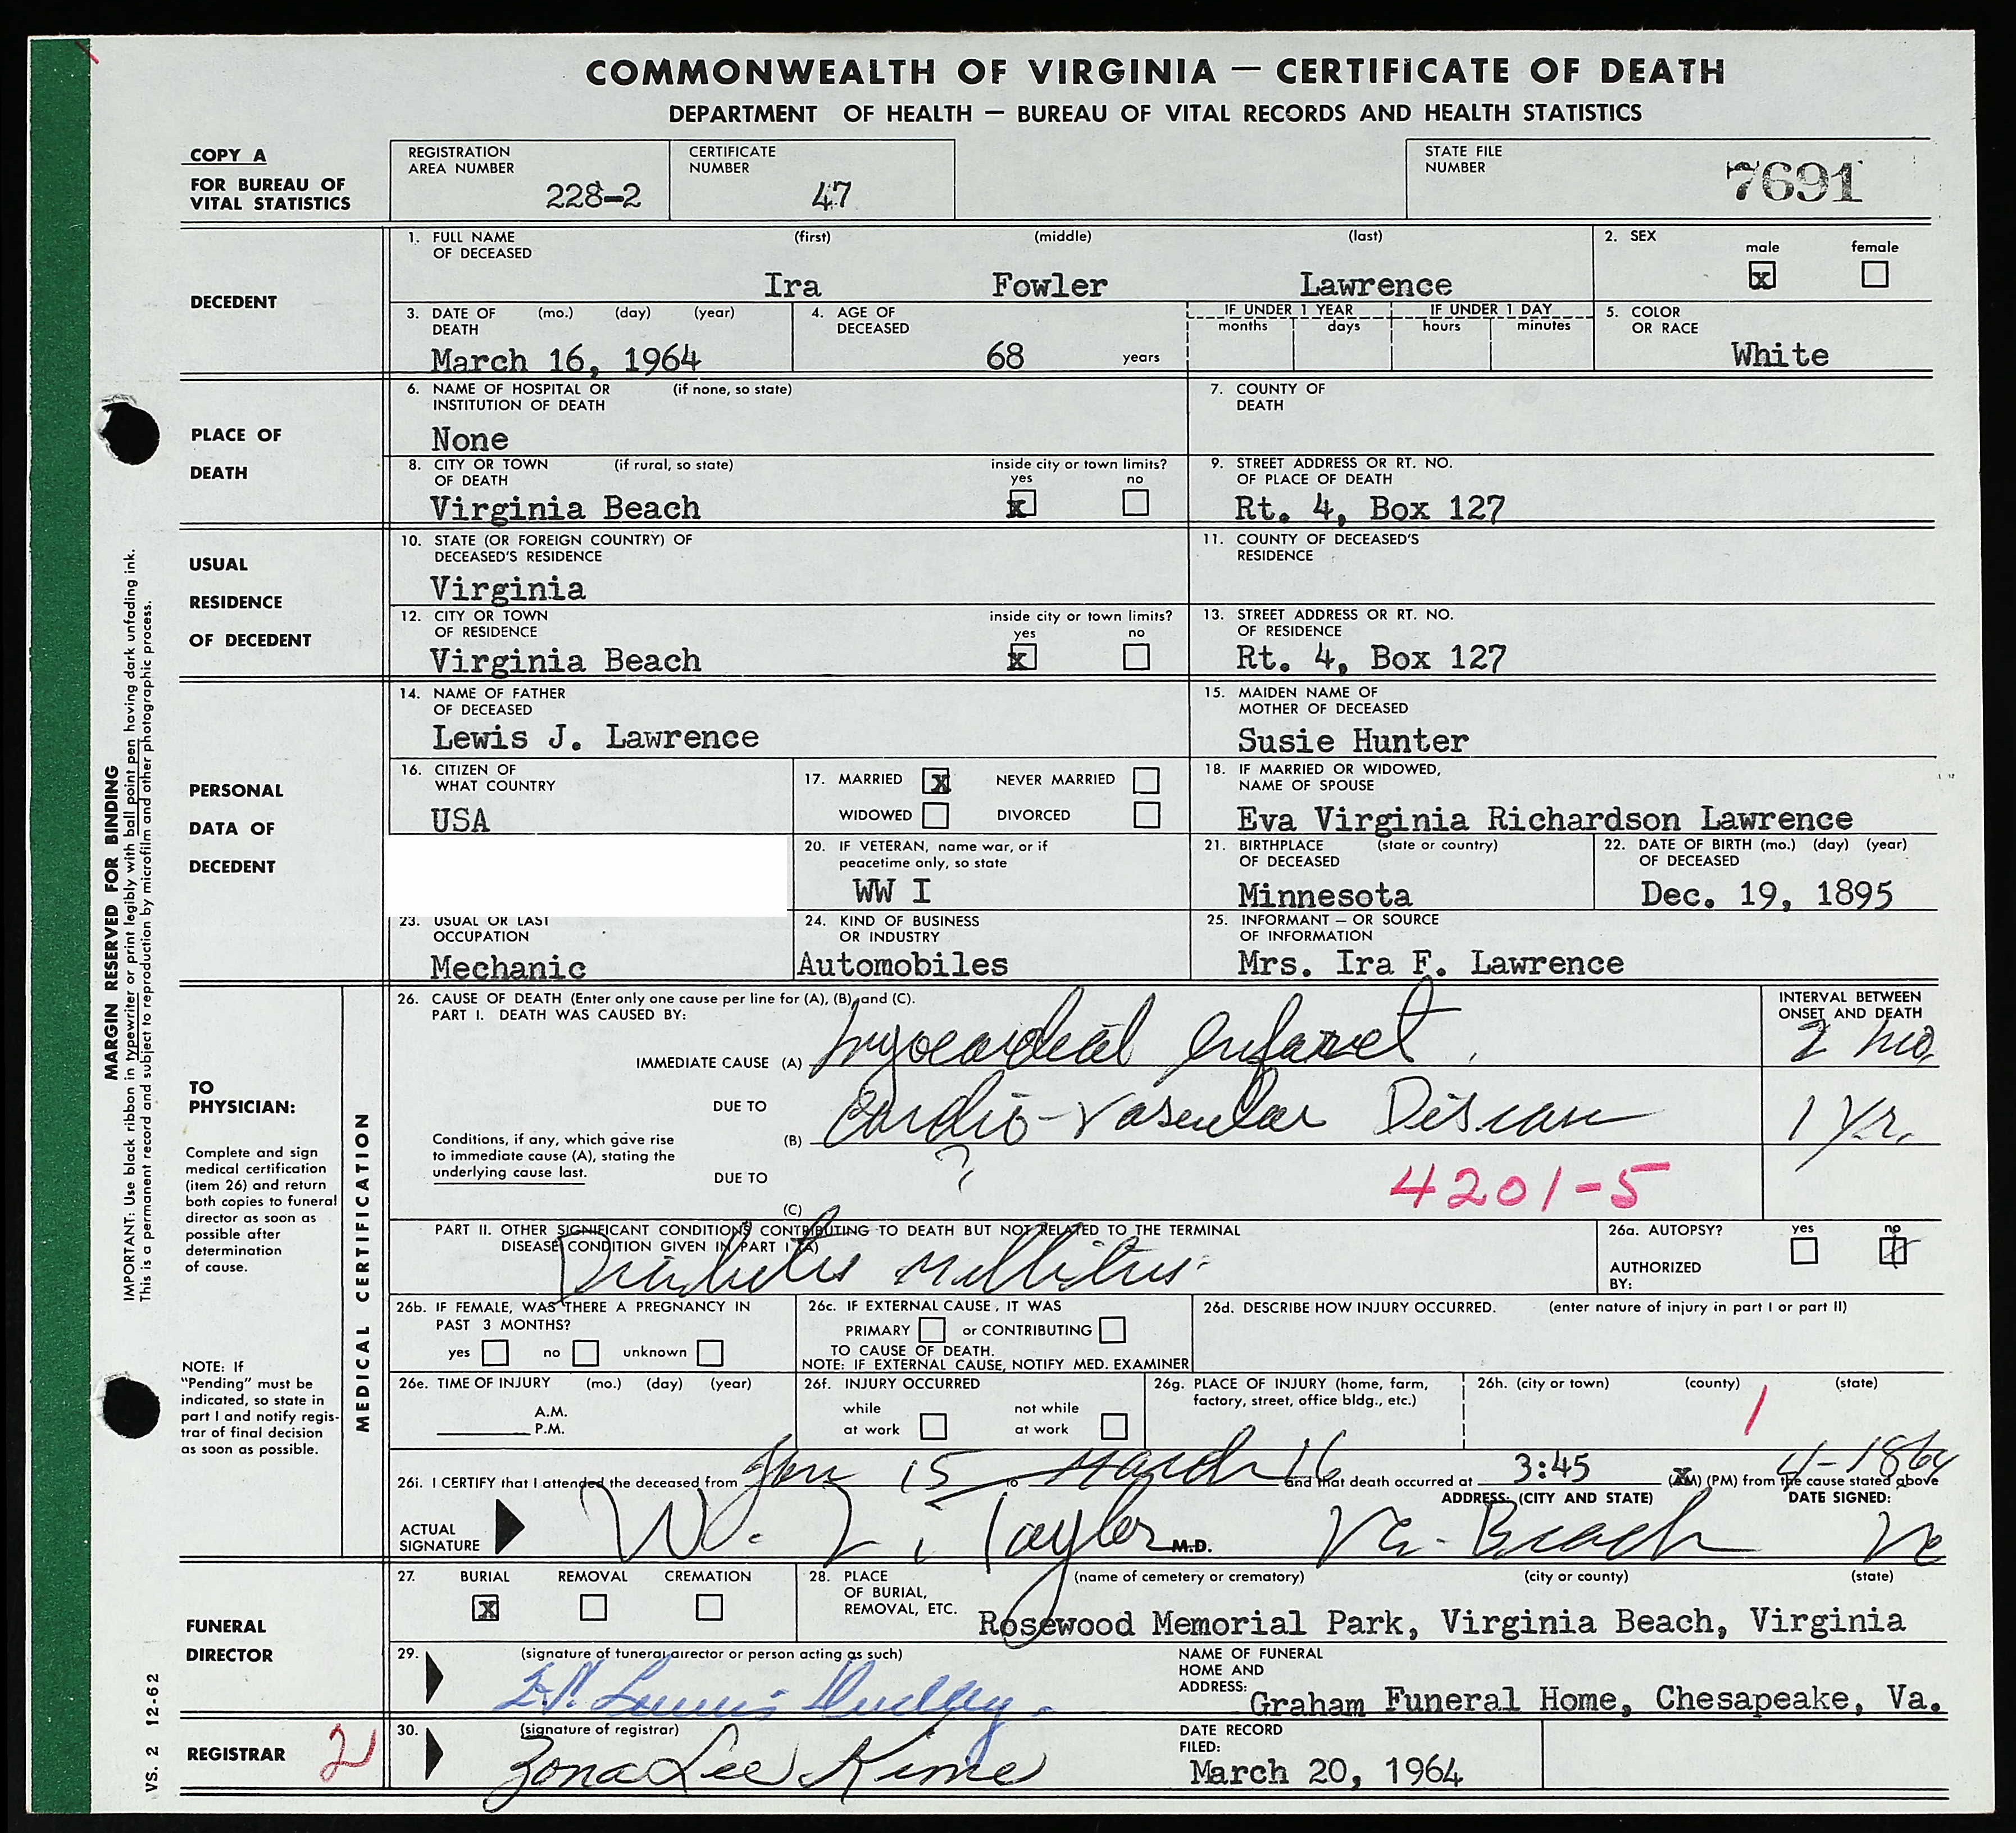 COMMONWEALTH OF VIRGINIA — CERTIFICATE OF DEATH
DEPARTMENT OF HEALTH — BUREAU OF VITAL RECORDS AND HEALTH STATISTICS
COPY A
FOR BUREAU OF
VITAL STATISTICS
REGISTRATION
AREA NUMBER
228-2
CERTIFICATE
NUMBER
47
STATE FILE
NUMBER
7691
DECEDENT
1. FULL NAME
OF DECEASED
(first) (middle) (last)
Ira Fowler Lawrence
2. SEX
male female
x
3. DATE OF (mo.) (day) (year)
DEATH
March 16, 1964
4. AGE OF
DECEASED
68 years
IF UNDER 1 YEAR IF UNDER 1 DAY
months days hours minutes
5. COLOR
OR RACE
White
PLACE OF
DEATH
6. NAME OF HOSPITAL OR (if none, so state)
INSTITUTION OF DEATH
None
7. COUNTY OF
DEATH
8. CITY OR TOWN (if rural, so state)
OF DEATH
Virginia Beach
inside city or town limits?
yes no
x
9. STREET ADDRESS OR RT. NO.
OF PLACE OF DEATH
Rt. 4, Box 127
USUAL
RESIDENCE
OF DECEDENT
10. STATE (OR FOREIGN COUNTRY) OF
DECEASED'S RESIDENCE
Virginia
11. COUNTY OF DECEASED'S
RESIDENCE
12. CITY OR TOWN
OF RESIDENCE
Virginia Beach
inside city or town limits?
yes no
x
13. STREET ADDRESS OR RT. NO.
OF RESIDENCE
Rt. 4, Box 127
PERSONAL
DATA OF
DECEDENT
14. NAME OF FATHER
OF DECEASED
Lewis J. Lawrence
15. MAIDEN NAME OF
MOTHER OF DECEASED
Susie Hunter
16. CITIZEN OF
WHAT COUNTRY
USA
17. MARRIED X NEVER MARRIED
WIDOWED DIVORCED
18. IF MARRIED OR WIDOWED,
NAME OF SPOUSE
Eva Virginia Richardson Lawrence
20. IF VETERAN, name war, or if
peacetime only, so state
WW I
21. BIRTHPLACE (state or country)
OF DECEASED
Minnesota
22. DATE OF BIRTH (mo.) (day) (year)
OF DECEASED
Dec. 19, 1895
23. USUAL OR LAST
OCCUPATION
Mechanic
24. KIND OF BUSINESS
OR INDUSTRY
Automobiles
25. INFORMANT — OR SOURCE
OF INFORMATION
Mrs. Ira F. Lawrence
MARGIN RESERVED FOR BINDING
IMPORTANT: Use black ribbon in typewriter or print legibly with ball point pen having dark unfading ink.
This is a permanent record and subject to reproduction by microfilm and other photographic process.
VS. 2 12-62
TO
PHYSICIAN:
Complete and sign
medical certification
(item 26) and return
both copies to funeral
director as soon as
possible after
determination
of cause.
NOTE: If
"Pending" must be
indicated, so state in
part I and notify regis-
trar of final decision
as soon as possible.
MEDICAL CERTIFICATION
26. CAUSE OF DEATH (Enter only one cause per line for (A), (B), and (C).
PART I. DEATH WAS CAUSED BY:
INTERVAL BETWEEN
ONSET AND DEATH
IMMEDIATE CAUSE (A) Myocardial Infarct 2 mo.
DUE TO
(B) Cardio-Vascular Disease 1 yr.
Conditions, if any, which gave rise
to immediate cause (A), stating the
underlying cause last.
DUE TO
(C)
?
4201-5
PART II. OTHER SIGNIFICANT CONDITIONS CONTRIBUTING TO DEATH BUT NOT RELATED TO THE TERMINAL
DISEASE CONDITION GIVEN IN PART I (A)
Diabetes Mellitus
26a. AUTOPSY? yes no
AUTHORIZED
BY:
26b. IF FEMALE, WAS THERE A PREGNANCY IN
PAST 3 MONTHS?
yes no unknown
26c. IF EXTERNAL CAUSE, IT WAS
PRIMARY or CONTRIBUTING
TO CAUSE OF DEATH.
NOTE: IF EXTERNAL CAUSE, NOTIFY MED. EXAMINER
26d. DESCRIBE HOW INJURY OCCURRED. (enter nature of injury in part I or part II)
26e. TIME OF INJURY (mo.) (day) (year)
A.M.
P.M.
26f. INJURY OCCURRED
while not while
at work at work
26g. PLACE OF INJURY (home, farm,
factory, street, office bldg., etc.)
26h. (city or town) (county) (state)
1
26i. I CERTIFY that I attended the deceased from Jan 15 to March 16 and that death occurred at 3:45 (AM) (PM) from the cause stated above
ADDRESS: (CITY AND STATE) DATE SIGNED:
ACTUAL
SIGNATURE
W. L. Taylor M.D. Va. Beach Va
FUNERAL
DIRECTOR
27. BURIAL REMOVAL CREMATION
X
28. PLACE
OF BURIAL,
REMOVAL, ETC.
(name of cemetery or crematory) (city or county) (state)
Rosewood Memorial Park, Virginia Beach, Virginia
29. (signature of funeral director or person acting as such)
NAME OF FUNERAL
HOME AND
ADDRESS: Graham Funeral Home, Chesapeake, Va.
REGISTRAR
2
30. (signature of registrar)
Zona Lee Kime
DATE RECORD
FILED:
March 20, 1964